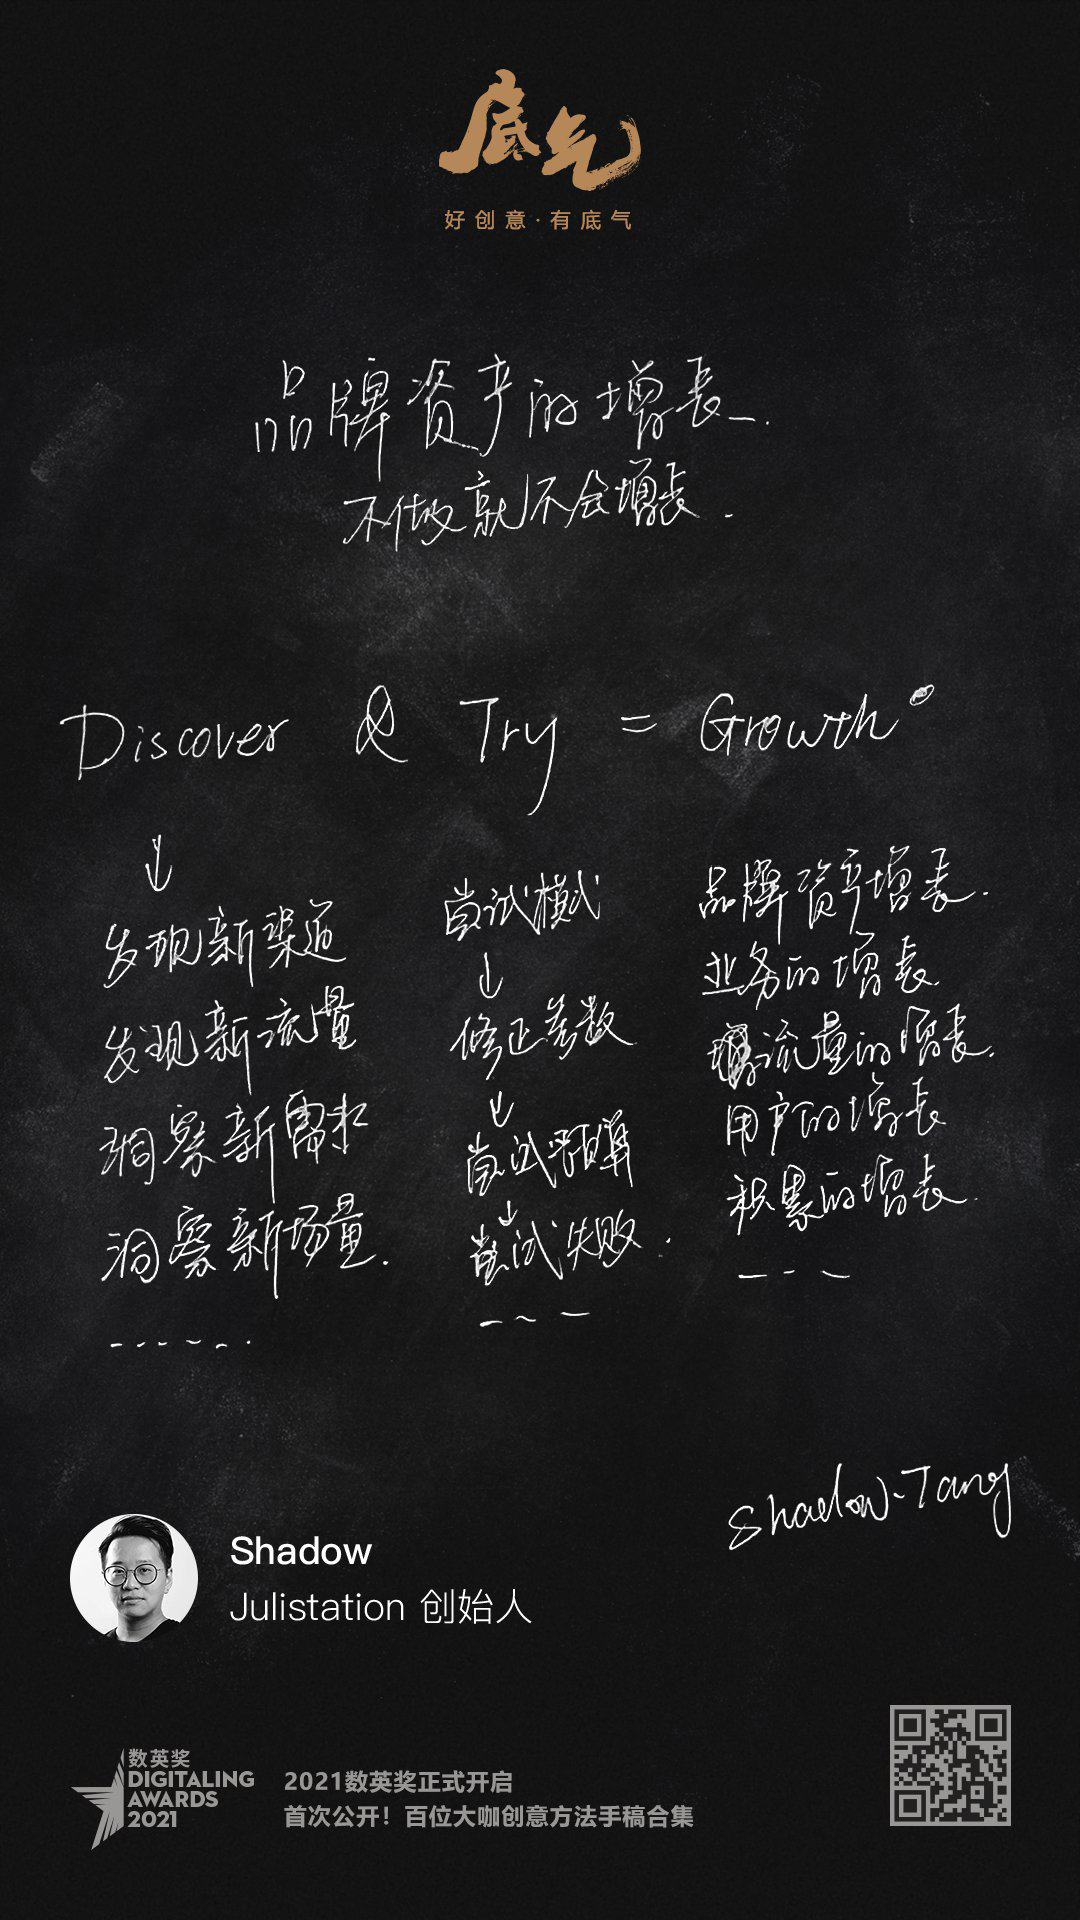 底气
好创意·有底气
品牌资产的增长.
不做就不会增长.
Discover & Try = Growth
↓
发现新渠道
发现新流量
洞察新需求
洞察新场量.
------
尝试模式
↓
修正参数
↓
尝试预算
↓
尝试失败.
---
品牌资产增长.
业务的增长.
流量的增长.
用户的增长
积累的增长.
---
Shadow-Tang
Shadow
Julistation 创始人
数英奖
DIGITALING
AWARDS
2021
2021数英奖正式开启
首次公开！百位大咖创意方法手稿合集